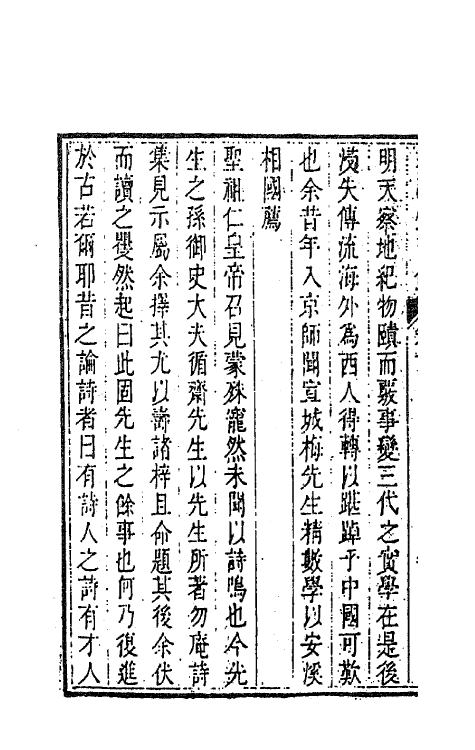 明天察地紀物賾而覈事變三代之實學在是後
寖失傳流海外爲西人得轉以踸踔乎中國可歎
也余昔年入京師聞宣城梅先生精數學以安溪
相國薦
聖祖仁皇帝召見蒙殊寵然未聞以詩鳴也今先
生之孫御史大夫循齋先生以先生所著勿庵詩
集見示屬余擇其尤以壽諸梓且命題其後余伏
而讀之矍然起曰此固先生之餘事也何乃復進
於古若爾耶昔之論詩者曰有詩人之詩有才人